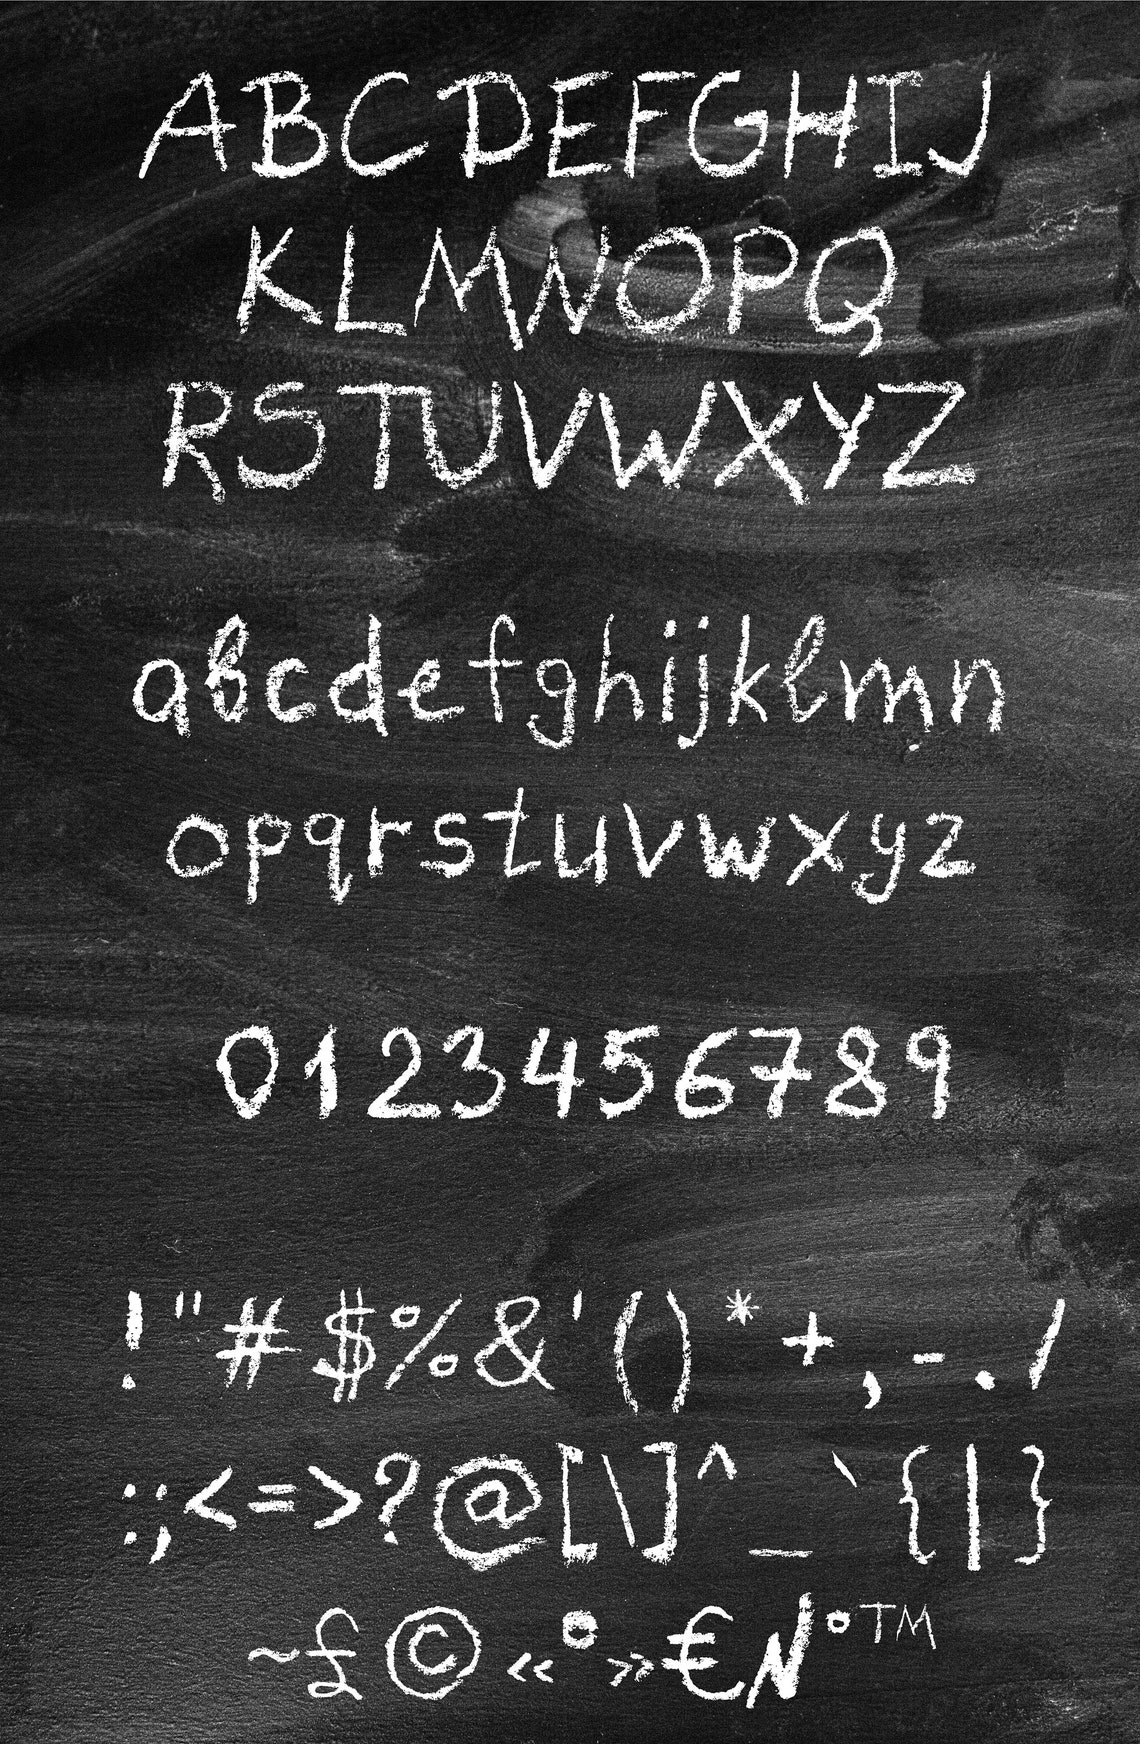 ABCDEFGHIJ
KLMNOPQ
RSTUVWXYZ
abcdefghijklmn
opqrstuvwxyz
0123456789
!"#$%&'()*+,-./
:;<=>?@[\]^_`{|}
~£©«°»€№™